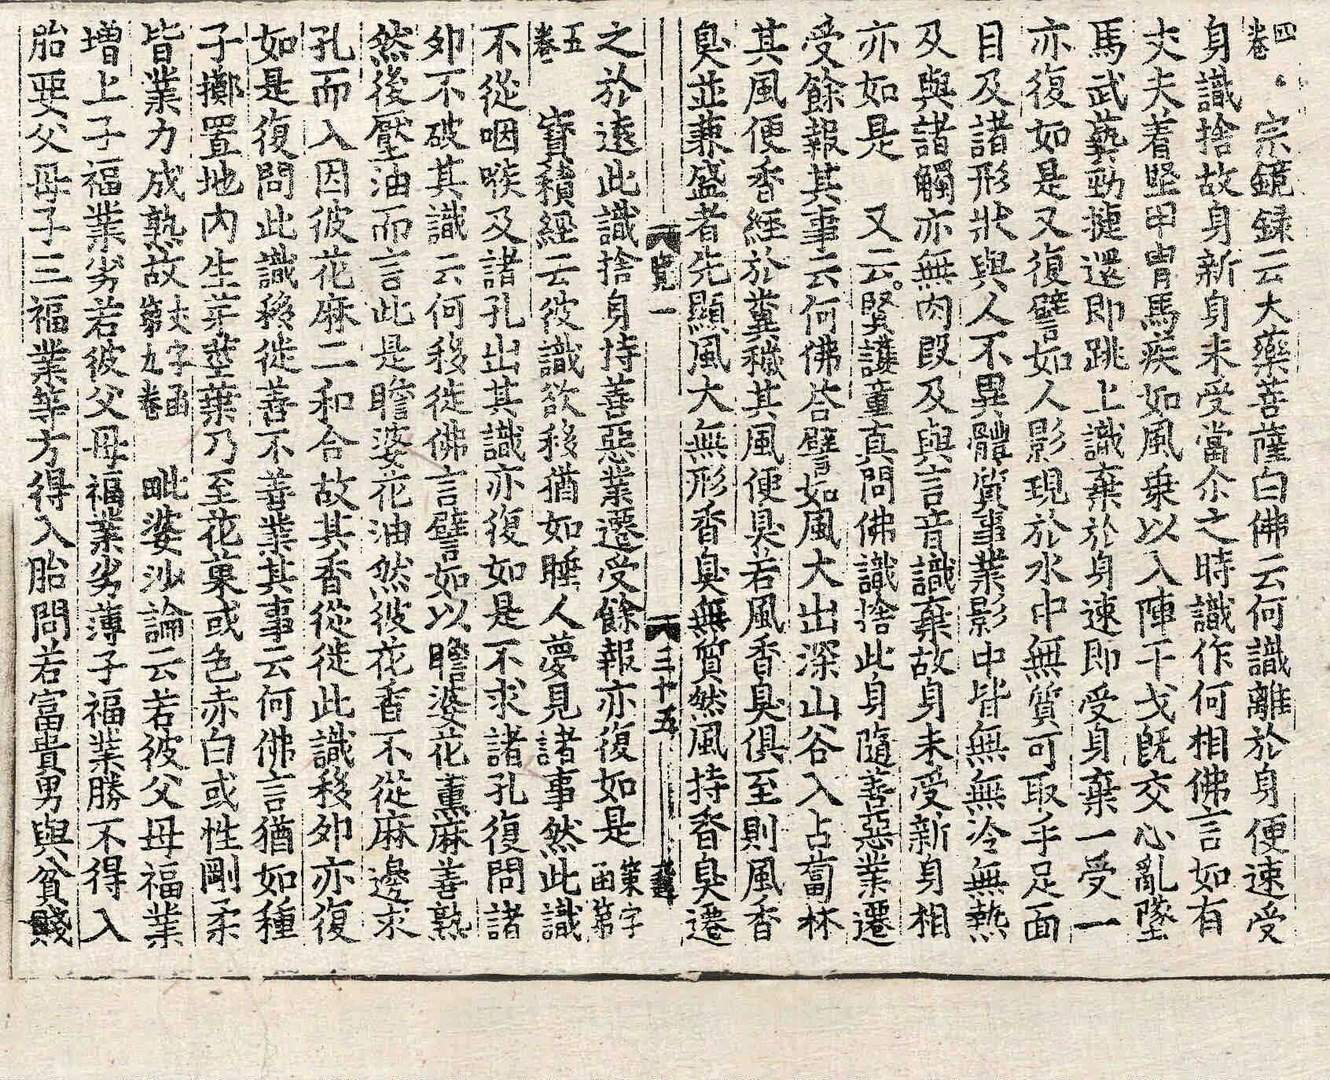 四卷 宗鏡録云大藥菩薩白佛云何識離於身便速受
身識捨故身新身未受當尒之時識作何相佛言如有
丈夫着堅甲胄馬疾如風乗以入陣干戈旣交心亂墜
馬武藝勁捷還即跳上識棄於身速即受身棄一受一
亦復如是又復譬如人影現於水中無質可取手足面
目及諸形狀與人不異體質事業影中皆無無冷無熱
及與諸觸亦無肉段及與言音識棄故身未受新身相
亦如是 又云賢護童真問佛識捨此身隨善惡業遷
受餘報其事云何佛荅譬如風大出深山谷入占蔔林
其風便香經於糞穢其風便臭若風香臭俱至則風香
臭並兼盛者先顯風大無形香臭無質然風持香臭遷
覽一 三十五
之於遠此識捨身持善惡業遷受餘報亦復如是策字函第
五卷 寶積經云彼識欲移猶如睡人夢見諸事然此識
不從咽喉及諸孔出其識亦復如是不求諸孔復問諸
夘不破其識云何移徙佛言譬如以瞻婆花薫麻善熟
然後壓油而言此是瞻婆花油然彼花香不從麻邊求
孔而入因彼花麻二和合故其香從徙此識移夘亦復
如是復問此識移徙善不善業其事云何佛言猶如種
子擲置地内生芽莖葉乃至花菓或色赤白或性剛柔
皆業力成熟故交字函第九卷 毗婆沙論云若彼父母福業
增上子福業劣若彼父母福業劣薄子福業勝不得入
胎要父母子三福業等方得入胎問若富貴男與貧賤